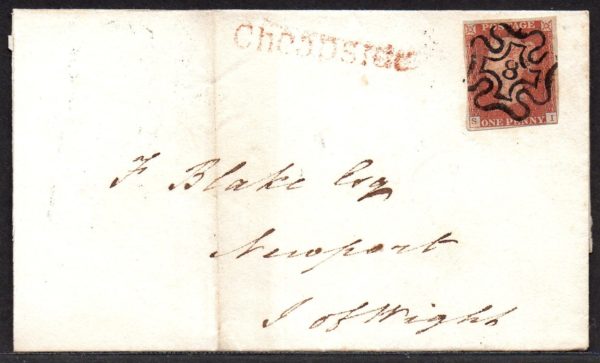 Cheapside
POSTAGE
8
S I
ONE PENNY
F. Blake Esq
Newport
I of Wight